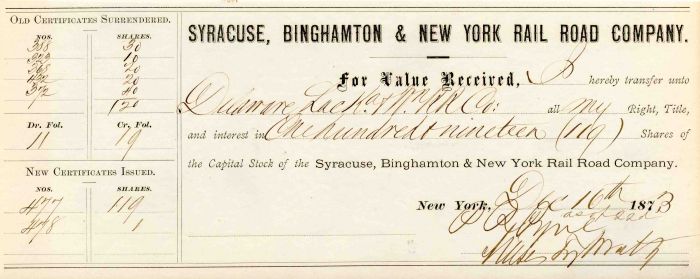 OLD CERTIFICATES SURRENDERED.
NOS. SHARES.
388 30
10
368 20
20
372 40
120
Dr. Fol. Cr. Fol.
11 19
NEW CERTIFICATES ISSUED.
NOS. SHARES.
477 119
478 1
SYRACUSE, BINGHAMTON & NEW YORK RAIL ROAD COMPANY.
For Value Received, I hereby transfer unto
Delaware Lacka & Wn RR Co: all my Right, Title,
and interest in One hundred & nineteen (119) Shares of
the Capital Stock of the Syracuse, Binghamton & New York Rail Road Company.
New York, Dec 16th 1873